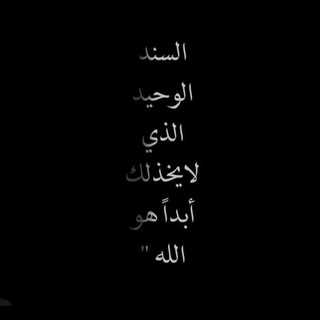 السند
الوحيد
الذي
لايخذلك
أبداً هو
الله "